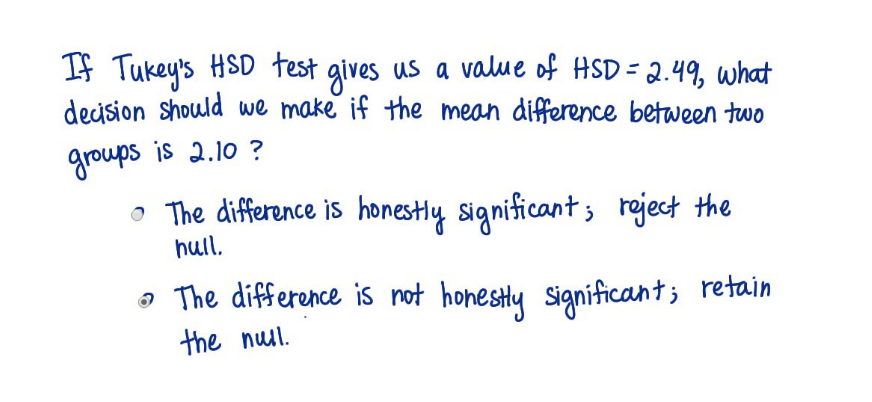 If Tukey's HSD test gives us a value of HSD = 2.49, what
decision should we make if the mean difference between two
groups is 2.10 ?
The difference is honestly significant; reject the
null.
The difference is not honestly significant; retain
the null.